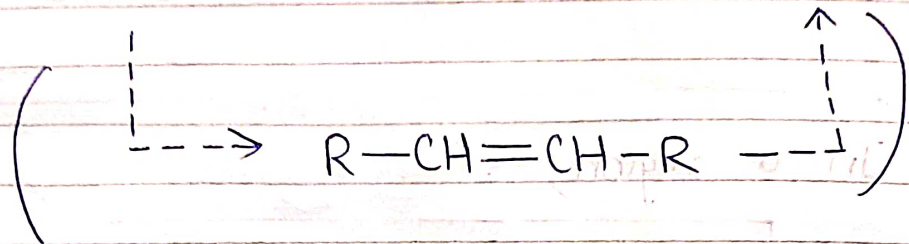 R—CH=CH—R